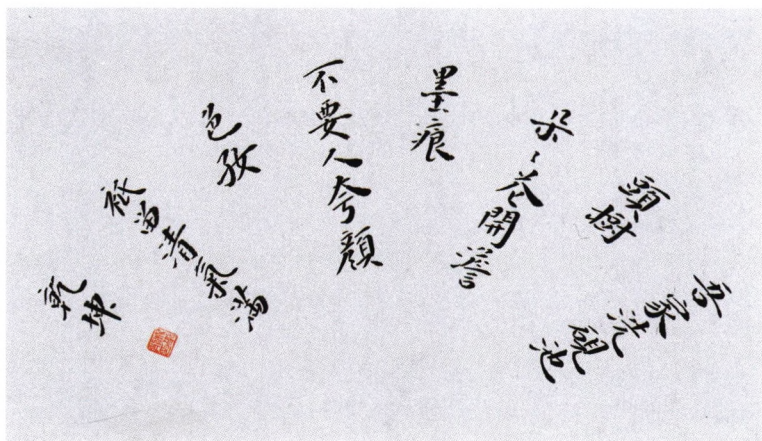 吾家洗硯池
頭樹
朵〻花開澹
墨痕
不要人夸顏
色好
祇留清氣滿
乾坤